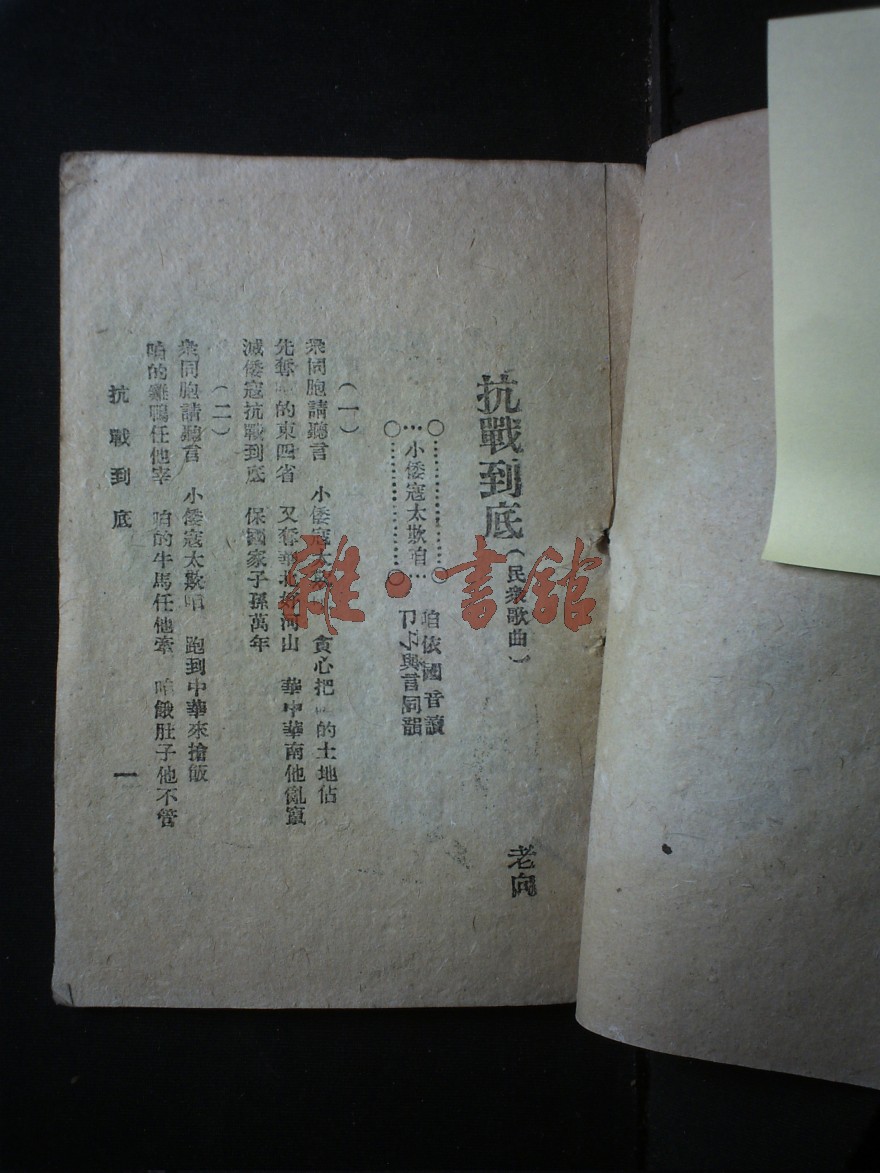 抗戰到底（民衆歌曲）
老向
小倭寇太欺咱
咱依國音讀
與言同韻
（一）
衆同胞請聽言　小倭寇太欺　貪心把　的土地佔
先奪　的東四省　又奪華北好河山　華中華南他亂竄
滅倭寇抗戰到底　保國家子孫萬年
（二）
衆同胞請聽言　小倭寇太欺咱　跑到中華來搶飯
咱的雞鴨任他宰　咱的牛馬任他牽　咱餓肚子他不管
抗戰到底
一
雜·書館